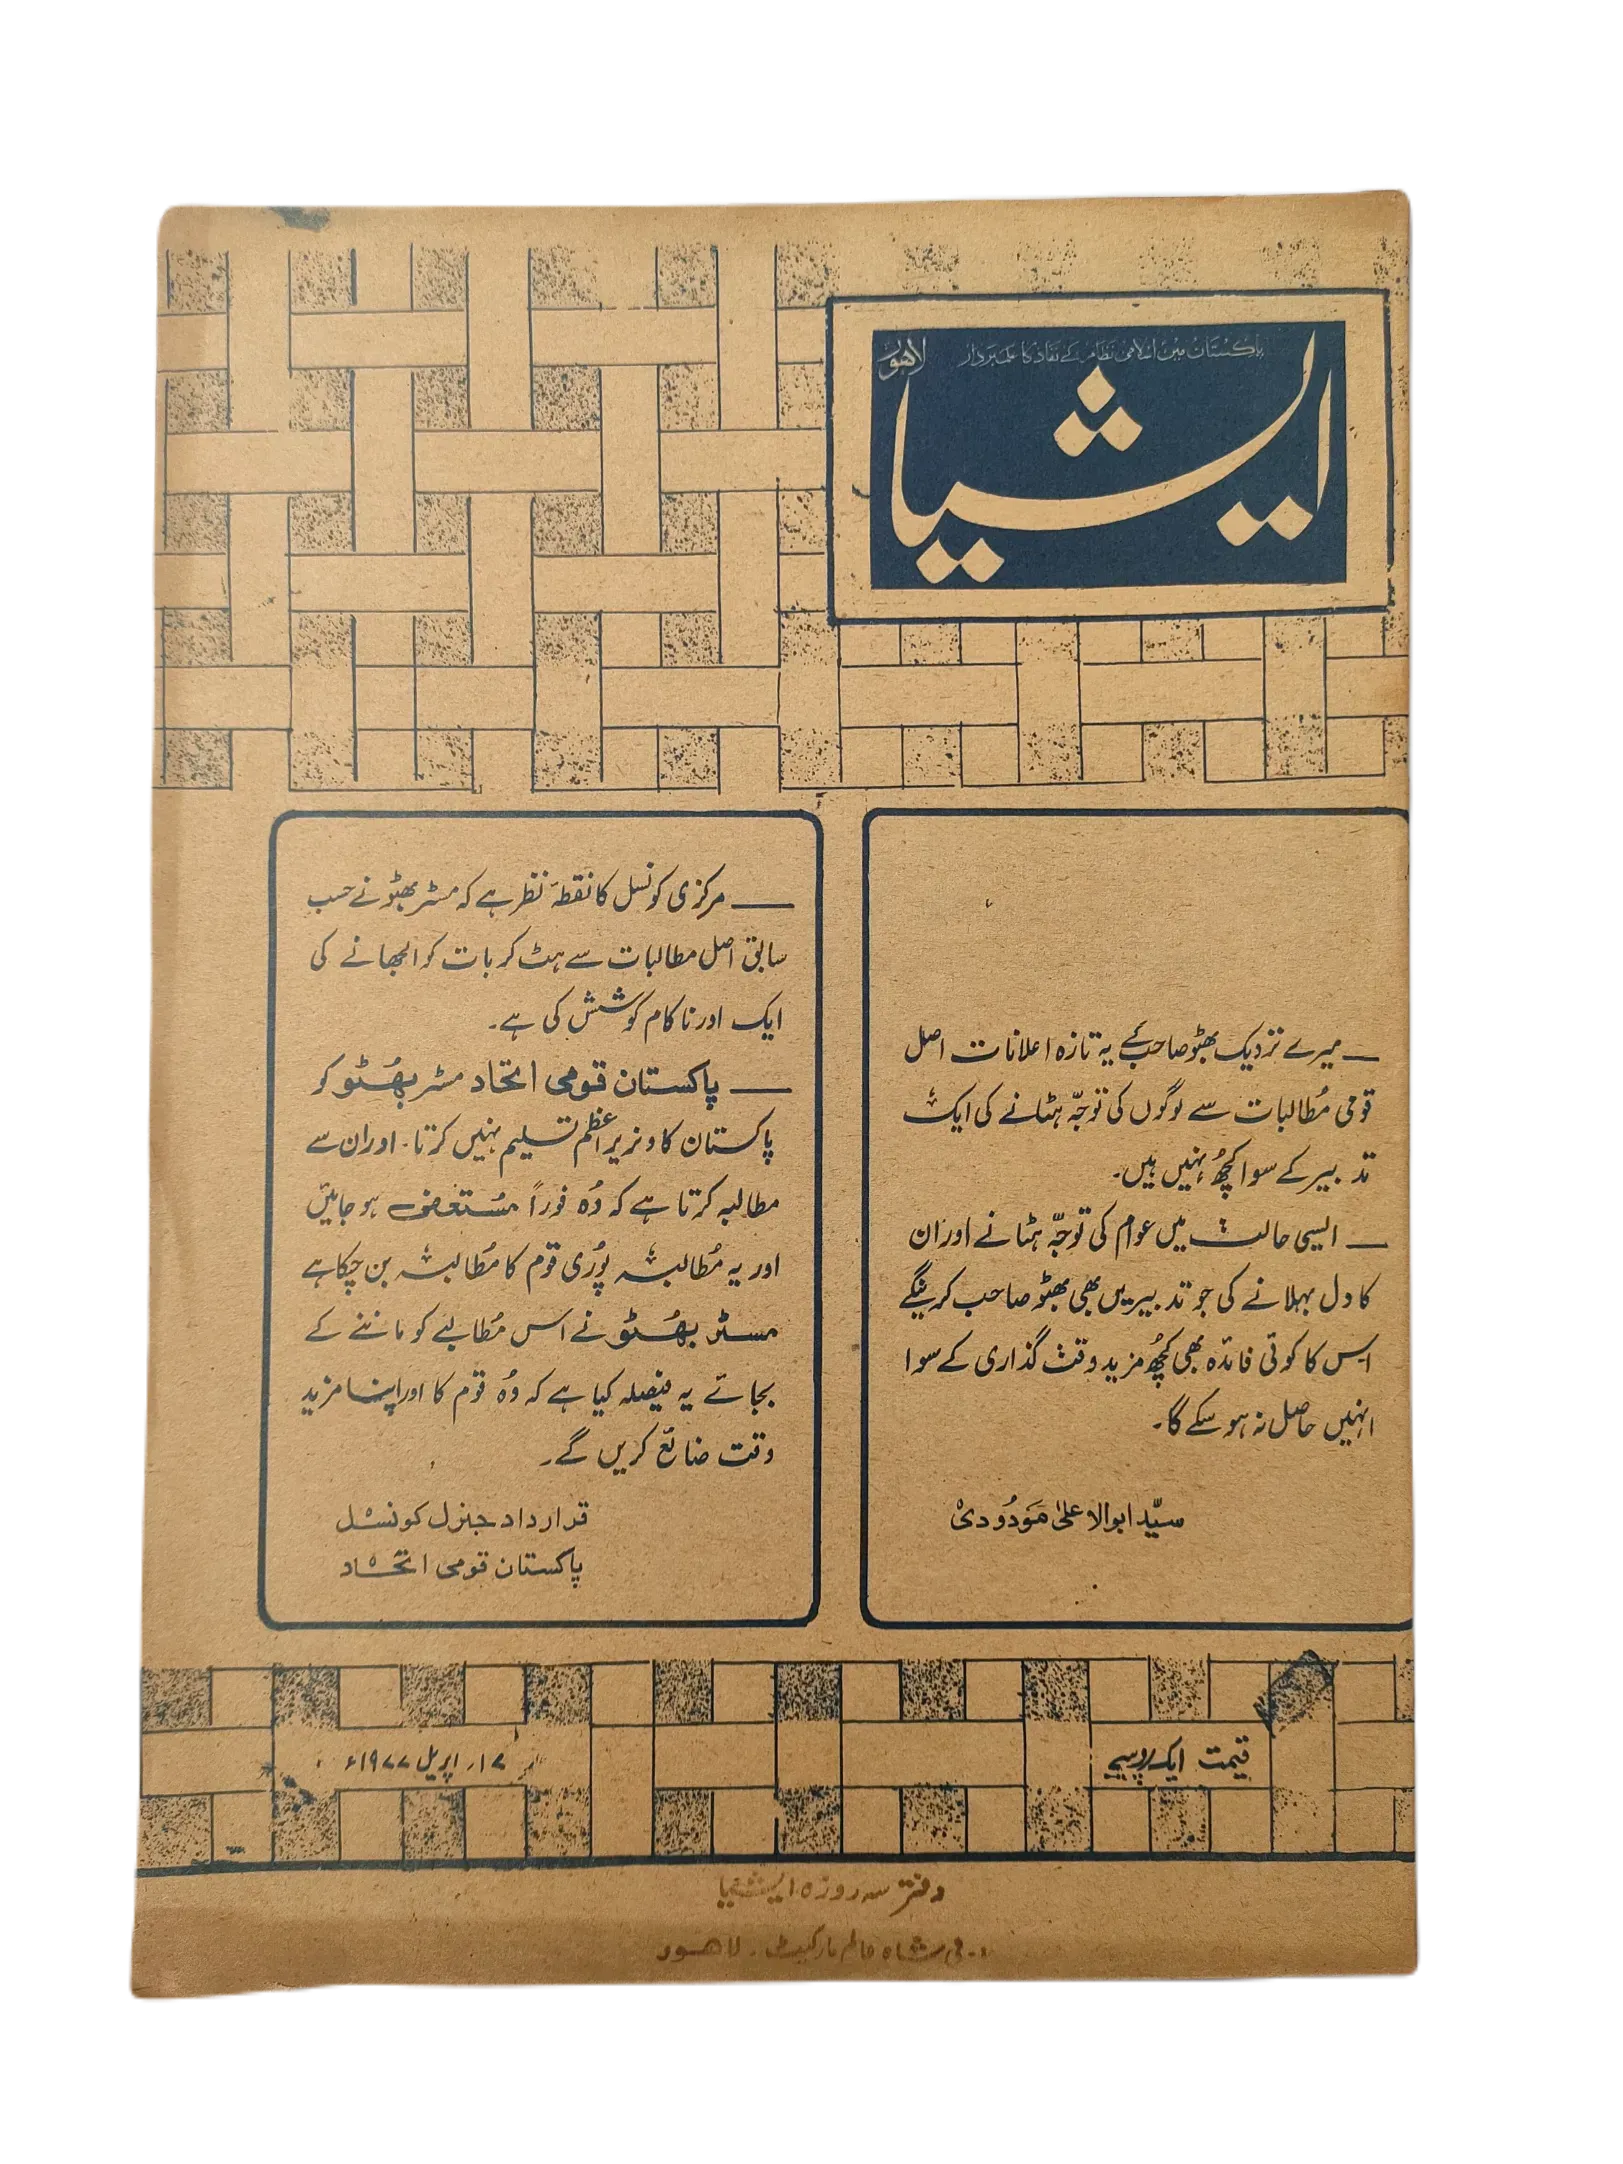 پاکستان میں اسلامی نظام کے نفاذ کا علمبردار
لاہور
ایشیا
— میرے نزدیک بھٹو صاحب کے یہ تازہ اعلانات اصل
قومی مُطالبات سے لوگوں کی توجّہ ہٹانے کی ایک
تدبیر کے سوا کچھُ نہیں ہیں۔
— ایسی حالت میں عوام کی توجّہ ہٹانے اور ان
کا دل بہلانے کی جو تدبیریں بھی بھٹو صاحب کرینگے
اس کا کوئی فائدہ بھی کچھُ مزید وقت گذاری کے سوا
انہیں حاصل نہ ہو سکے گا۔
سیّد ابوالاعلیٰ مَودُودی
— مرکزی کونسل کا نقطۂ نظر ہے کہ مسٹر بھٹو نے حسب
سابق اصل مطالبات سے ہٹ کر بات کو الجھانے کی
ایک اور ناکام کوشش کی ہے۔
— پاکستان قومی اتحاد مسٹر بھُٹو کو
پاکستان کا وزیر اعظم تسلیم نہیں کرتا۔ اور ان سے
مطالبہ کرتا ہے کہ وُہ فوراً مُستعفی ہو جائیں
اور یہ مُطالبہ پُوری قوم کا مُطالبہ بن چکا ہے
مسٹر بھُٹو نے اس مُطالبے کو ماننے کے
بجائے یہ فیصلہ کیا ہے کہ وُہ قوم کا اور اپنا مزید
وقت ضائع کریں گے۔
قرارداد جنرل کونسل
پاکستان قومی اتحاد
قیمت ایک روپیے
۱۷ر اپریل ۱۹۷۷ء
دفتر سہ روزہ ایشیا
شاہ عالم مارکیٹ۔ لاہور